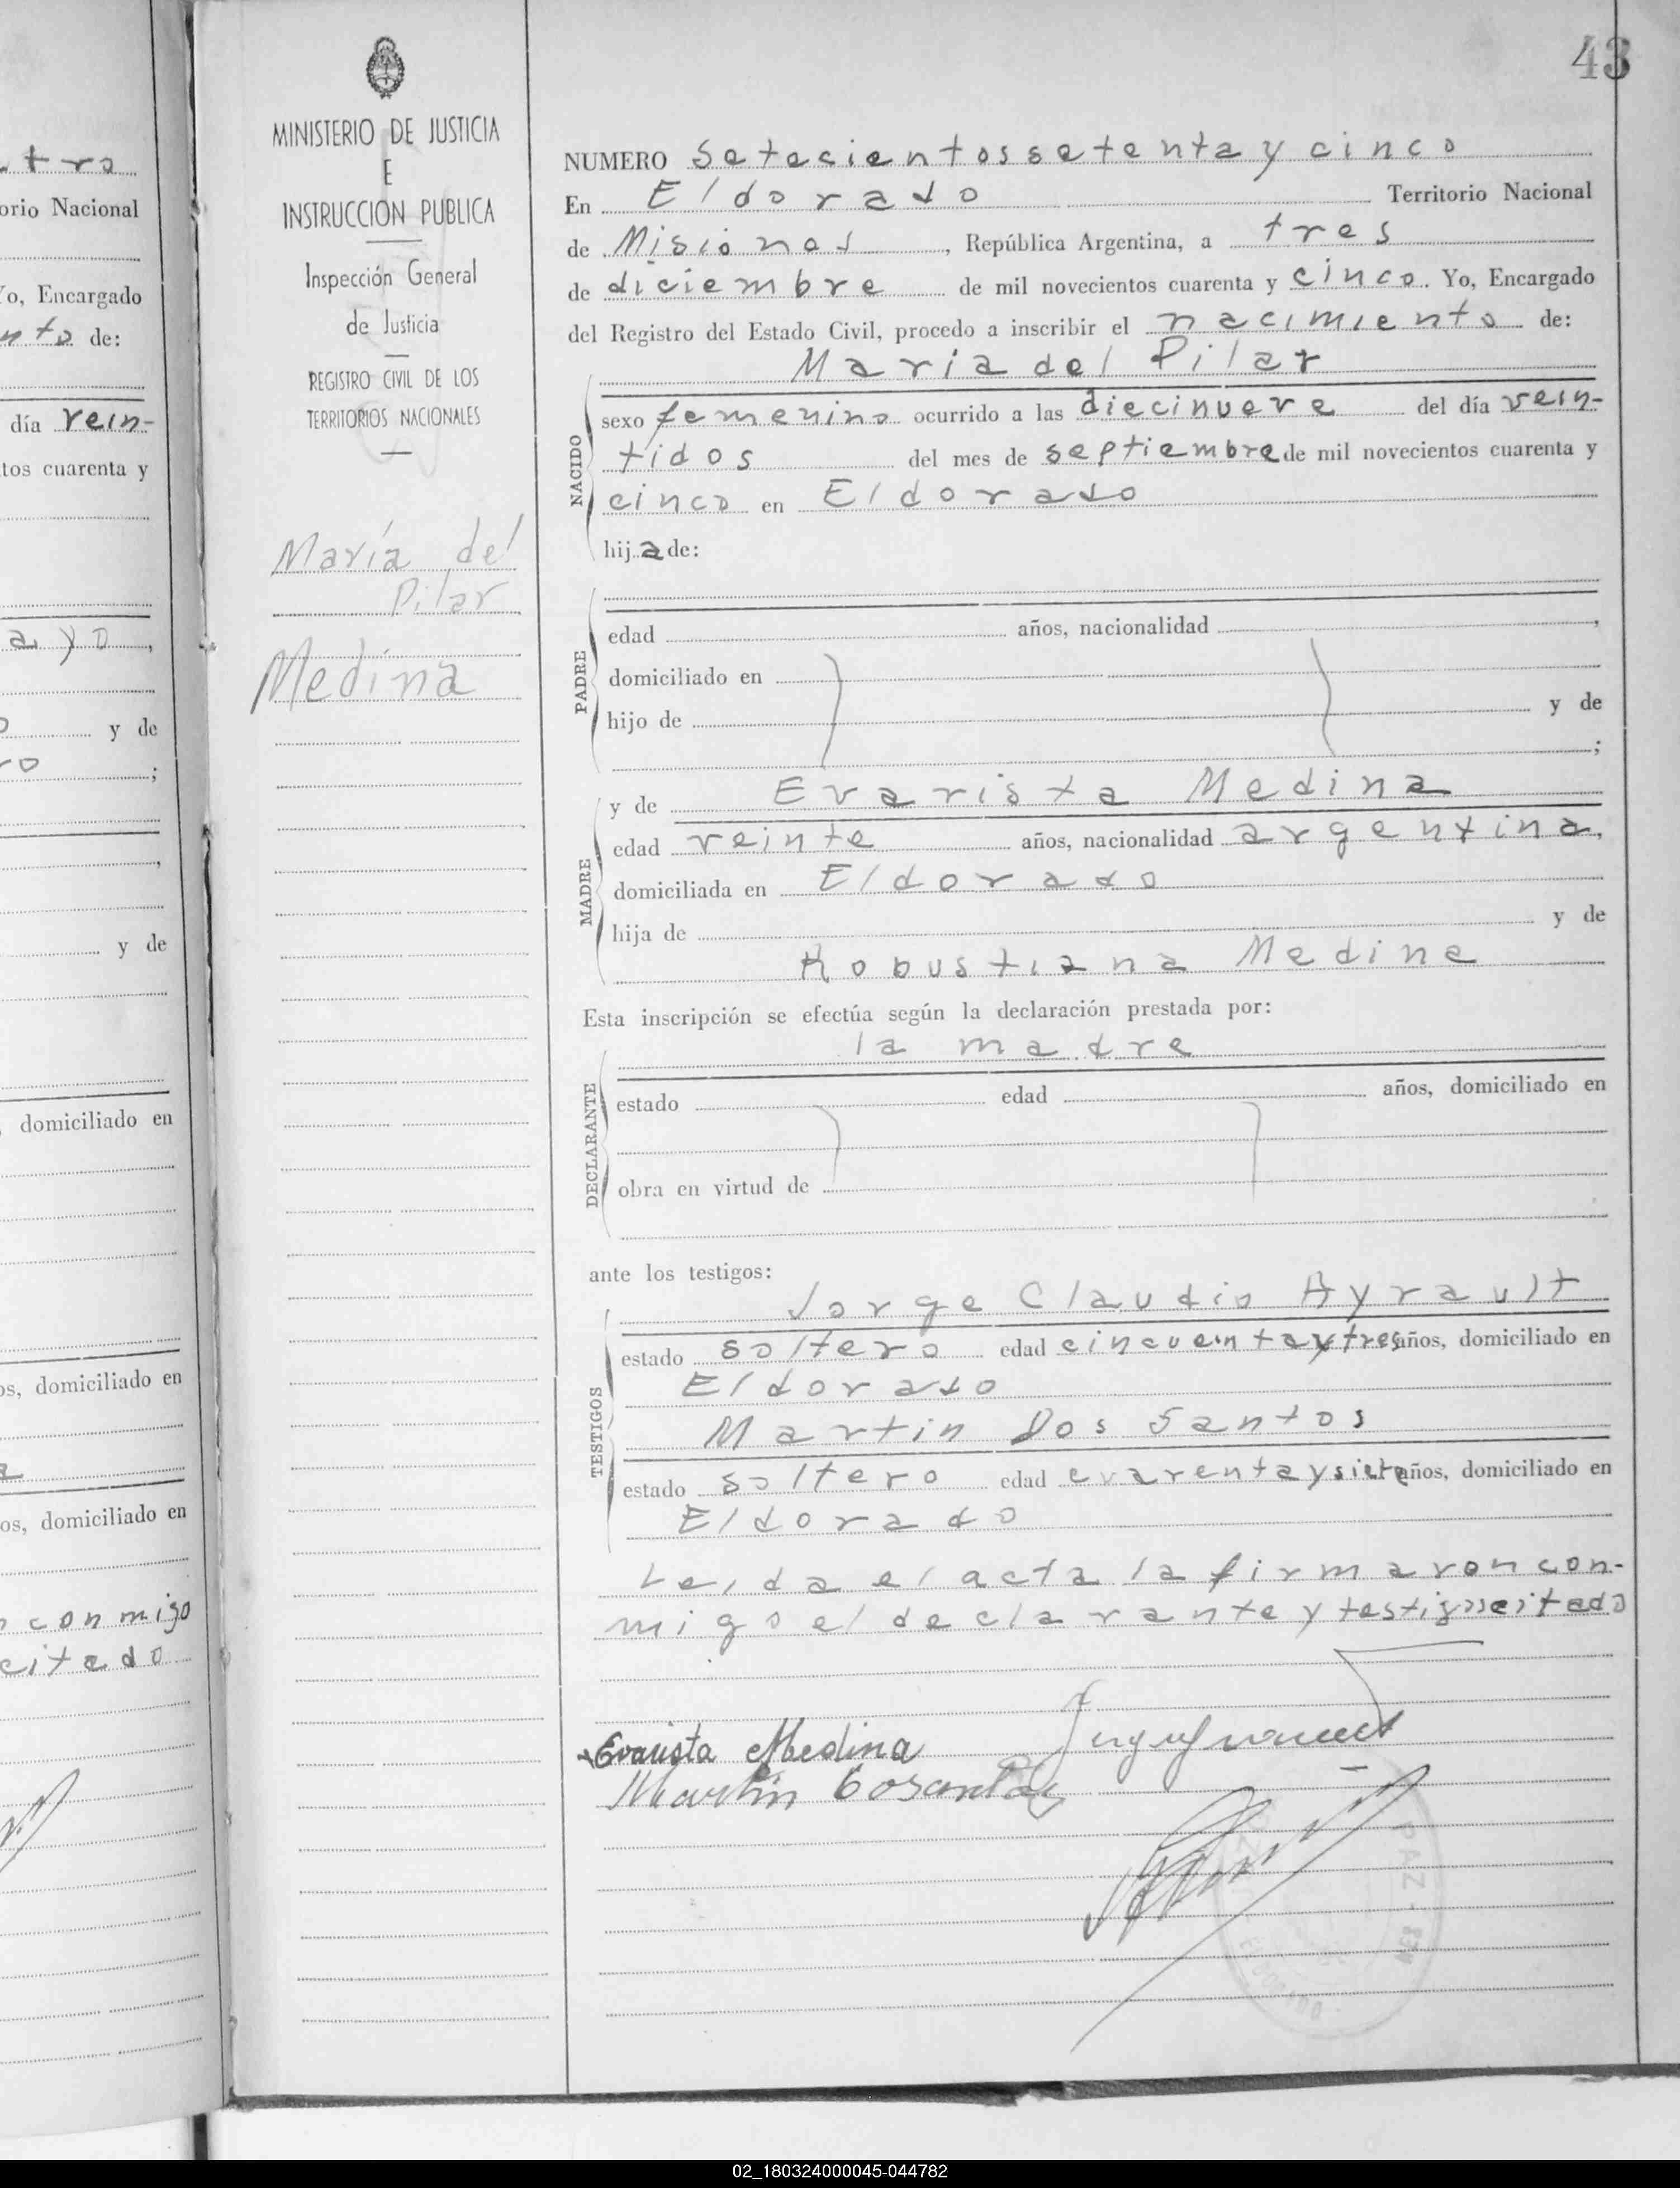 43
MINISTERIO DE JUSTICIA
E
INSTRUCCIÓN PUBLICA
Inspección General
de Justicia
REGISTRO CIVIL DE LOS
TERRITORIOS NACIONALES
María del
Pilar
Medina
NUMERO Setecientos setenta y cinco
En Eldorado Territorio Nacional
de Misiones, República Argentina, a tres
de diciembre de mil novecientos cuarenta y cinco. Yo, Encargado
del Registro del Estado Civil, procedo a inscribir el nacimiento de:
María del Pilar
NACIDO
sexo femenino ocurrido a las diecinueve del día vein-
tidos del mes de septiembre de mil novecientos cuarenta y
cinco en Eldorado
hija de:
PADRE
edad años, nacionalidad ,
domiciliado en
hijo de y de
;
MADRE
y de Evarista Medina
edad veinte años, nacionalidad argentina,
domiciliada en Eldorado
hija de y de
Robustiana Medina
Esta inscripción se efectúa según la declaración prestada por:
la madre
DECLARANTE
estado edad años, domiciliado en
obra en virtud de
ante los testigos:
Jorge Claudio Ayrault
TESTIGOS
estado soltero edad cincuentaytres años, domiciliado en
Eldorado
Martin Dos Santos
estado soltero edad cuarentaysiete años, domiciliado en
Eldorado
Leida el acta la firmaron con-
migo el declarante y testigos citado
Evarista Medina
Martin
tro
orio Nacional
Yo, Encargado
nto de:
día vein-
tos cuarenta y
ayo,
y de
ro ;
y de
domiciliado en
os, domiciliado en
os, domiciliado en
conmigo
citado
PAZ
02_180324000045-044782